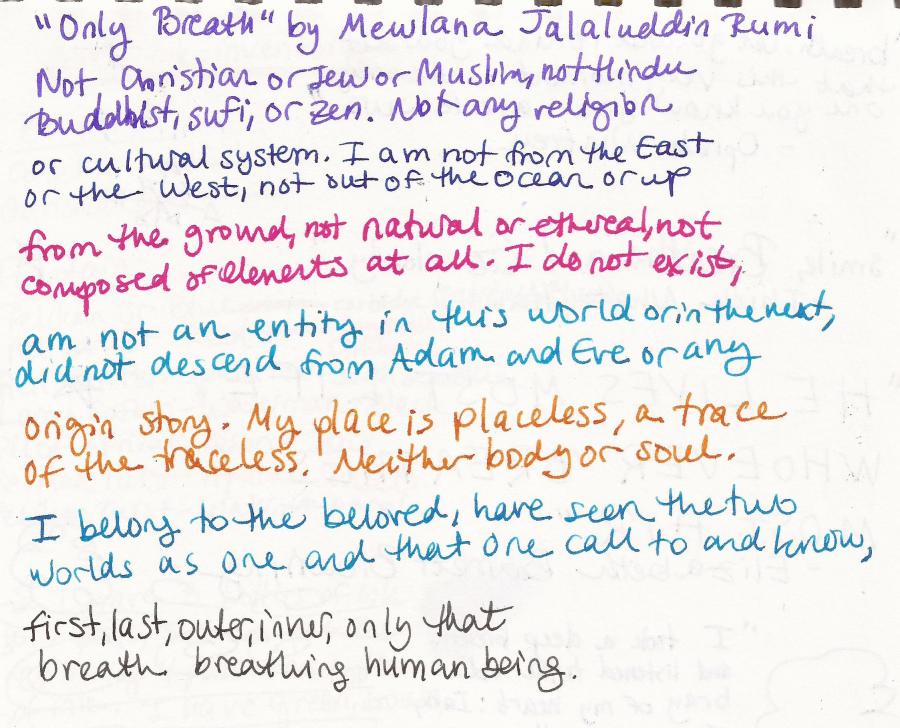 "Only Breath" by Mewlana Jalaluddin Rumi
Not Christian or Jew or Muslim, not Hindu
Buddhist, sufi, or zen. Not any religion
or cultural system. I am not from the East
or the West, not out of the ocean or up
from the ground, not natural or ethereal, not
composed of elements at all. I do not exist,
am not an entity in this world or in the next,
did not descend from Adam and Eve or any
origin story. My place is placeless, a trace
of the traceless. Neither body or soul.
I belong to the beloved, have seen the two
worlds as one and that one call to and know,
first, last, outer, inner, only that
breath breathing human being.